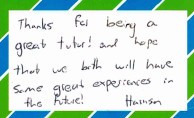 Thanks for being a
great tutor! and hope
that we both will have
some great experiences in
the future! Harrison